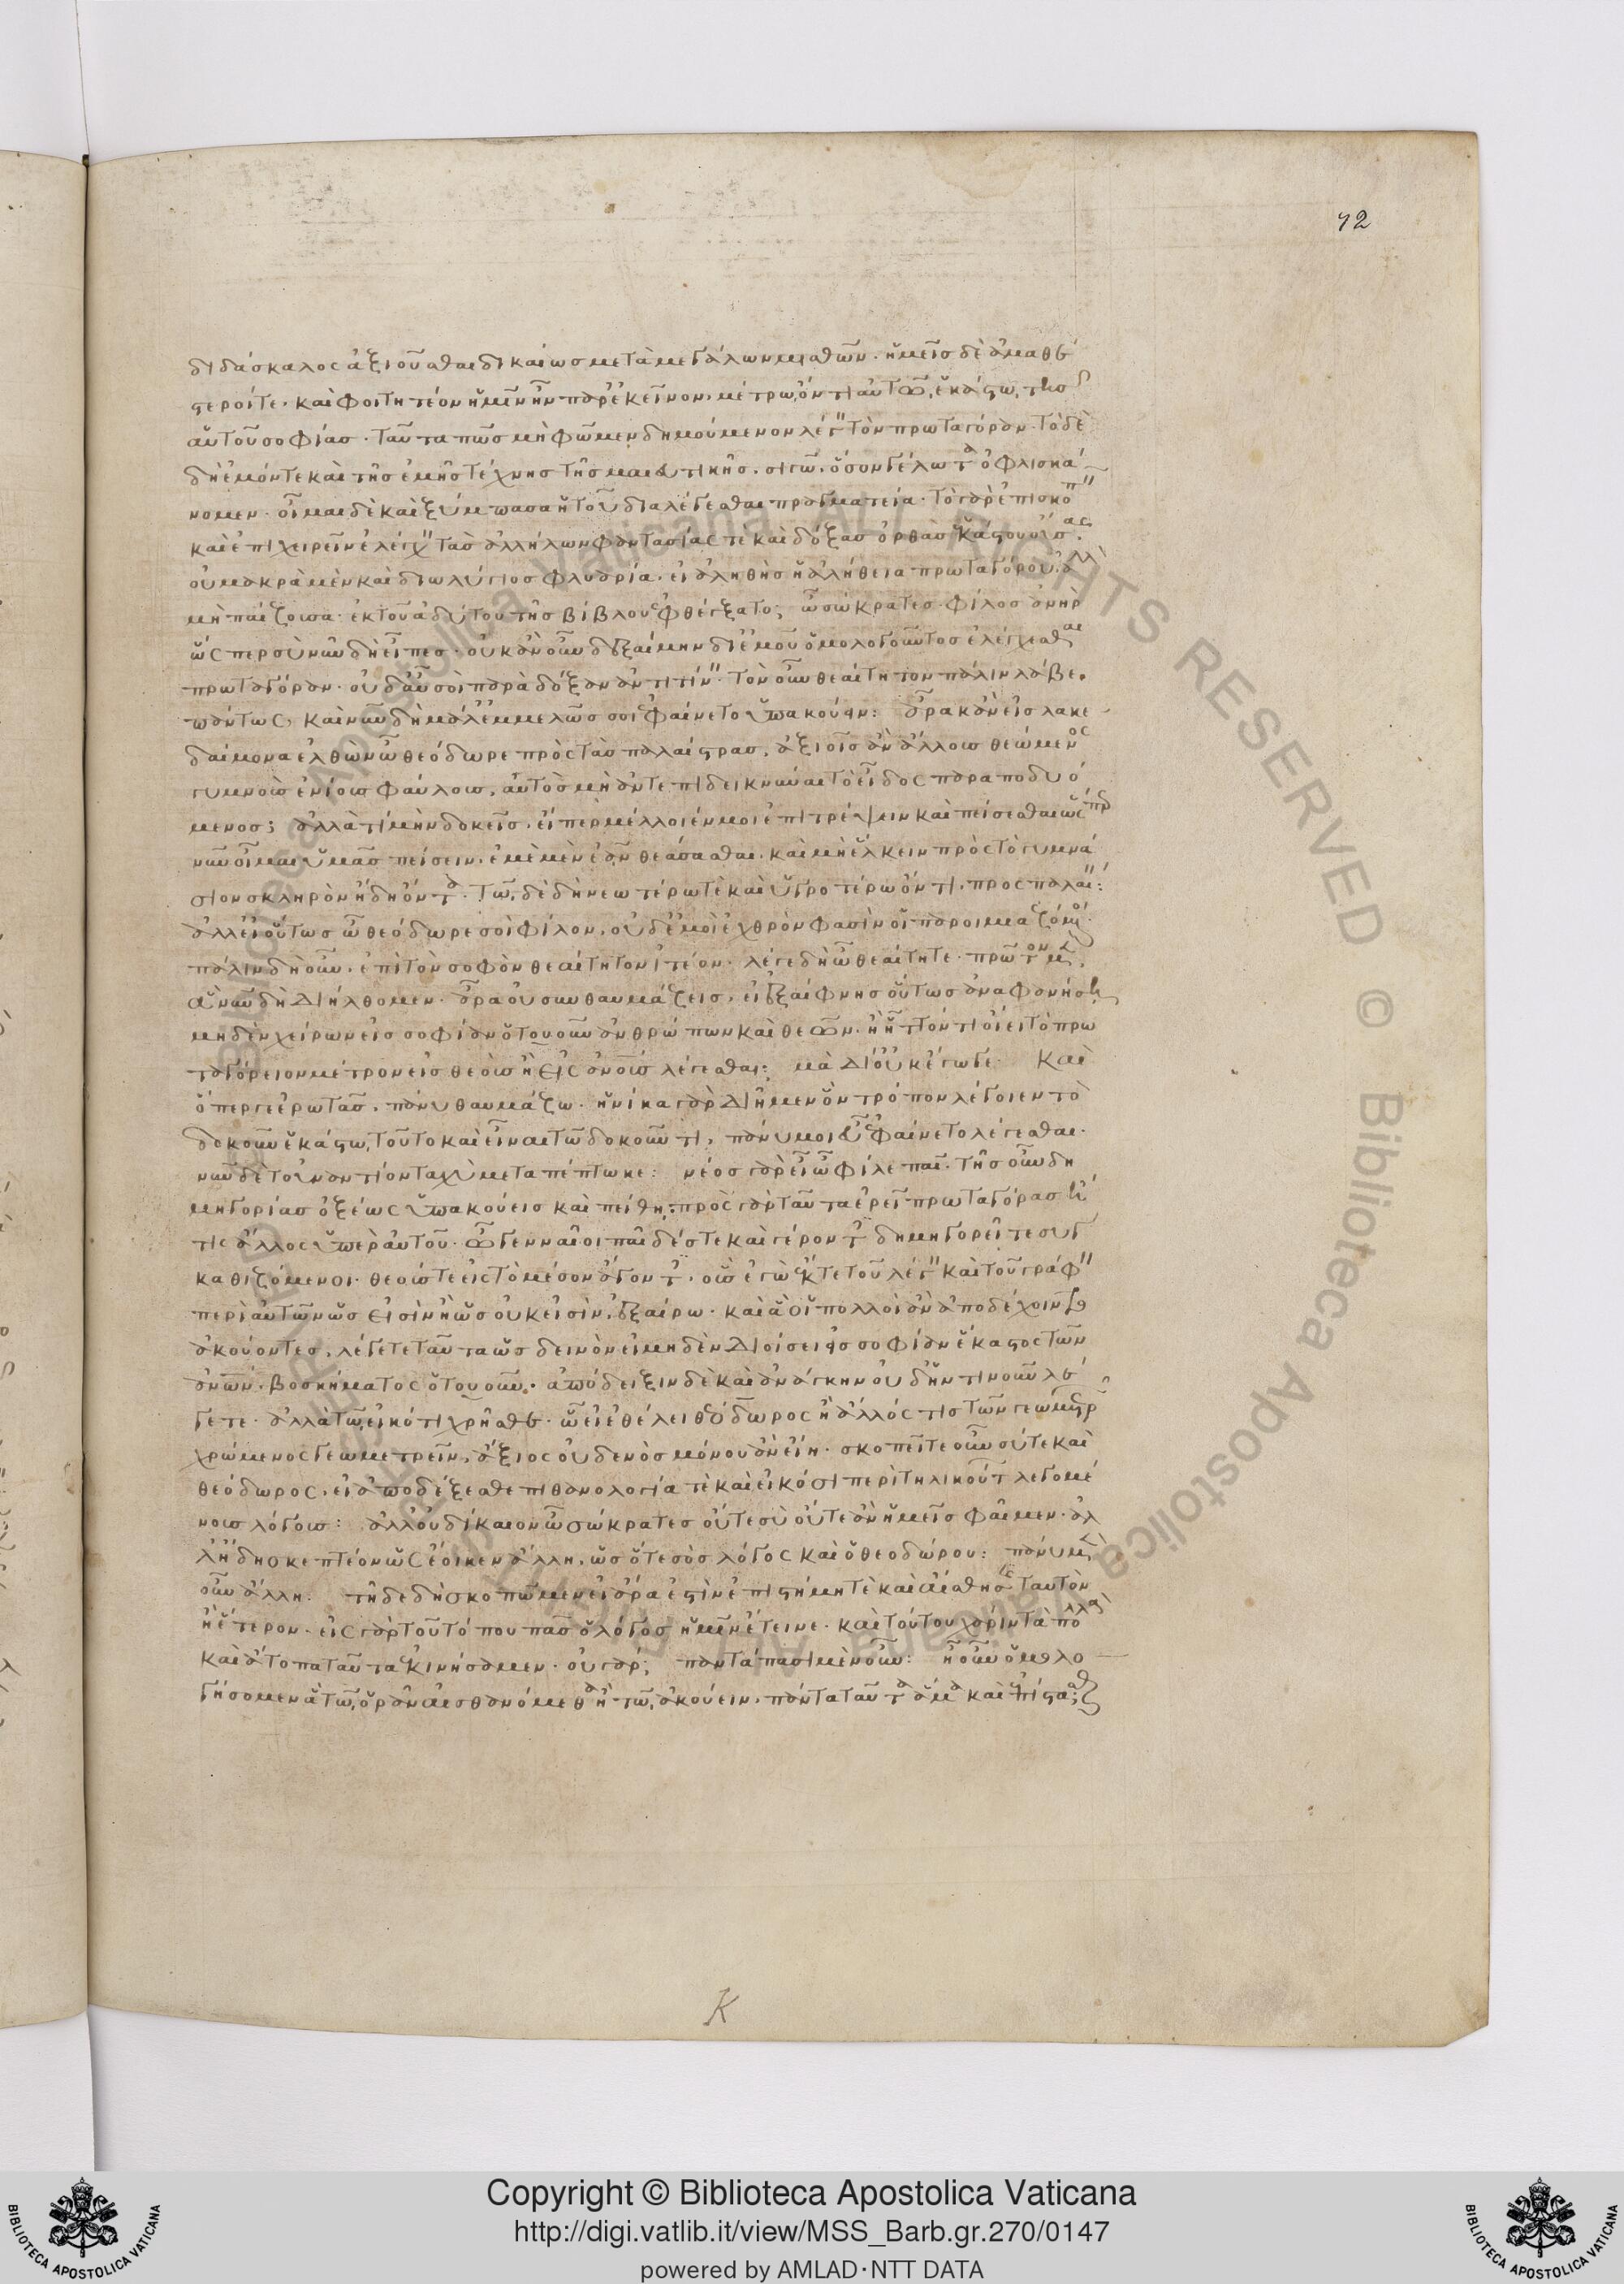 72
διδάσκαλος ἀξιοῦσθαι δικαίως μετὰ μεγάλων μισθῶν· ἡμεῖς δὲ ἀμαθέ
στεροί τε· καὶ φοιτητέον ἡμῖν ἦν παρ' ἐκεῖνον, μέτρω ὄντι αὐτῶ ἑκάστω τῆς
αὑτοῦ σοφίας· ταῦτα πῶς μὴ φῶμεν δημούμενον λέγειν τὸν πρωταγόραν· τὸ δὲ
δὴ ἐμόν τε καὶ τῆς ἐμῆς τέχνης τῆς μαιευτικῆς, σιγῶ, ὅσον γέλωτα ὀφλισκά
νομεν· οἶμαι δὲ καὶ ξύμπασα ἡ τοῦ διαλέγεσθαι πραγματεία· τὸ γὰρ ἐπισκοπεῖν
καὶ ἐπιχειρεῖν ἐλέγχειν τὰς ἀλλήλων φαντασίας τὲ καὶ δόξας ὀρθὰς ἑκάστου οὔσας·
οὐ μακρὰ μὲν καὶ διωλύγιος φλυαρία, εἰ ἀληθὴς ἡ ἀλήθεια πρωταγόρου· ἀλλὰ
μὴ παίζουσα ἐκ τοῦ ἀδύτου τῆς βίβλου ἐφθέγξατο; ὦ σώκρατες φίλος ἁνὴρ
ὥσπερ σὺ νῦν δὴ εἶπες· οὐκ ἂν οὖν δεξαίμην δι' ἐμοῦ ὁμολογοῦντος ἐλέγχεσθαι
πρωταγόραν· οὐδ' αὖ σοὶ παρὰ δόξαν ἀντιτείνειν· τὸν οὖν θεαίτητον πάλιν λάβε·
πάντως καὶ νῦν δὴ μάλ' ἐμμελῶς σοι ἐφαίνετο ὑπακούειν: ἆρα κἂν εἰς λακε
δαίμονα ἐλθὼν ὦ θεόδωρε πρὸς τὰς παλαίστρας, ἀξιοῖς ἂν ἄλλους θεώμενος
γυμνοὺς ἐνίους φαύλους, αὐτὸς μὴ ἀντεπιδεικνύναι τὸ εἶδος παραποδυό
μενος; ἀλλὰ τί μὴν δοκεῖς, εἴπερ μέλλοιέν μοι ἐπιτρέψειν καὶ πείσεσθαι ὥσπερ
νῦν οἶμαι ὑμᾶς πείσειν, ἐμὲ μὲν ἐᾶν θεάσασθαι, καὶ μὴ ἕλκειν πρὸς τὸ γυμνά
σιον σκληρὸν ἤδη ὄντα· τῶ δὲ δὴ νεωτέρω τὲ καὶ ὑγροτέρω ὄντι, προσπαλαίειν:
ἀλλ' εἰ οὕτως ὦ θεόδωρε σοὶ φίλον, οὐδ' ἐμοὶ ἐχθρὸν φασὶν οἱ παροιμιαζόμενοι·
πάλιν δὴ οὖν, ἐπὶ τὸν σοφὸν θεαίτητον ἰτέον· λέγε δὴ ὦ θεαίτητε· πρῶτον μὲν,
ἃ νῦν δὴ διήλθομεν· ἆρα οὐ συνθαυμάζεις, εἰ ἐξαίφνης οὕτως ἀναφανήσει
μηδὲν χείρων εἰς σοφίαν ὁτουοῦν ἀνθρώπων καὶ θεῶν· ἢ ἧττόν τι οἴει τὸ πρω
ταγόρειον μέτρον εἰς θεοὺς ἢ εἰς ἀνους λέγεσθαι; μὰ Δί' οὐκ ἔγωγε· Καὶ
ὅπερ γε ἐρωτᾶς, πάνυ θαυμάζω· ἡνίκα γὰρ διῆμεν ὃν τρόπον λέγοιεν τὸ
δοκοῦν ἑκάστω, τοῦτο καὶ εἶναι τῶ δοκοῦντι, πάνυ μοι εὖ ἐφαίνετο λέγεσθαι·
νῦν δὲ τοὐναντίον ταχὺ μεταπέπτωκε: νέος γὰρ εἶ ὦ φίλε παῖ· τῆς οὖν δη
μηγορίας ὀξέως ὑπακούεις καὶ πείθη· πρὸς γὰρ ταῦτα ἐρεῖ πρωταγόρας ἤ
τις ἄλλος ὑπὲρ αὐτοῦ· ὦ γενναῖοι παῖδές τε καὶ γέροντες δημηγορεῖτε συγ
καθιζόμενοι· θεούς τε εἰς τὸ μέσον ἄγοντες, οὓς ἐγὼ ἔκ τε τοῦ λέγειν καὶ τοῦ γράφειν
περὶ αὐτῶν ὡς εἰσὶν ἢ ὡς οὐκ εἰσὶν, ἐξαίρω· καὶ ἃ οἱ πολλοὶ ἂν ἀποδέχοιντο
ἀκούοντες, λέγετε ταῦτα ὡς δεινὸν εἰ μηδὲν διοίσει εἰς σοφίαν ἕκαστος τῶν
ἀνων· βοσκήματος ὁτουοῦν· ἀπόδειξιν δὲ καὶ ἀνάγκην οὐδ' ἥντιν οὖν λέ
γετε· ἀλλὰ τῶ εἰκότι χρῆσθε· ὧ εἰ ἐθέλει θεόδωρος ἢ ἄλλός τις τῶν γεωμετρῶν
χρώμενος γεωμετρεῖν, ἄξιος οὐδενὸς μόνου ἂν εἴη· σκοπεῖτε οὖν σύ τε καὶ
θεόδωρος, εἰ ἀποδέξεσθε πιθανολογία τὲ καὶ εἰκόσι περὶ τηλικούτων λεγομέ
νους λόγους: ἀλλ' οὐ δίκαιον ὦ σώκρατες οὔτε σὺ οὔτε ἂν ἡμεῖς φαῖμεν· ἀλ
λη δὴ σκεπτέον ὡς ἔοικεν ἄλλη, ὡς ὅ τε σὸς λόγος καὶ ὁ θεοδώρου: πάνυ μὲν
οὖν ἄλλη: τῆδε δὴ σκοπῶμεν εἰ ἄρα ἐστὶν ἐπιστήμη τὲ καὶ αἴσθησις ταυτὸν
ἢ ἕτερον· εἰς γὰρ τοῦτό που πᾶς ὁ λόγος ἡμῖν ἔτεινε· καὶ τούτου χάριν τὰ πολλὰ
καὶ ἄτοπα ταῦτα ἐκινήσαμεν· οὐ γάρ; παντάπασι μὲν οὖν: ἦ οὖν ὁμολο
γήσομεν ἃ τῶ ὁρᾶν αἰσθανόμεθα ἢ τῶ ἀκούειν, πάντα ταῦτα ἅμα καὶ ἐπίστασθαι;
Κ
Copyright © Biblioteca Apostolica Vaticana
http://digi.vatlib.it/view/MSS_Barb.gr.270/0147
powered by AMLAD·NTT DATA